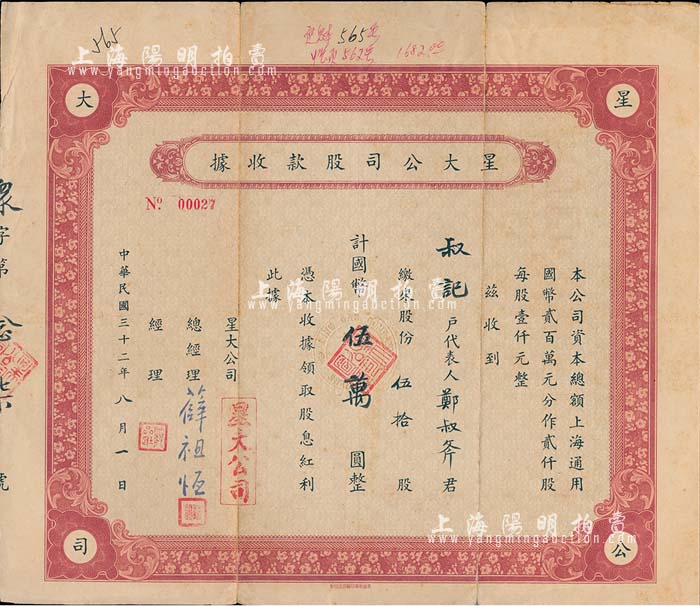 565
565
562
1682.00
星
大
公
司
星大公司股款收據
No 00027
本公司資本總額上海通用
國幣貳百萬元分作貳仟股
每股壹仟元整
茲收到
叔記戶代表人鄭叔斧君
繳來股份伍拾股
計國幣伍萬圓整
憑本收據領取股息紅利
此據
星大公司
總經理 薛祖恆
經理
星大公司
中華民國三十二年八月一日
字第 號
上海陽明拍賣
www.yangmingauction.com
上海陽明拍賣
www.yangmingauction.com
上海陽明拍賣
www.yangmingauction.com
上海陽明拍賣
www.yangmingauction.com